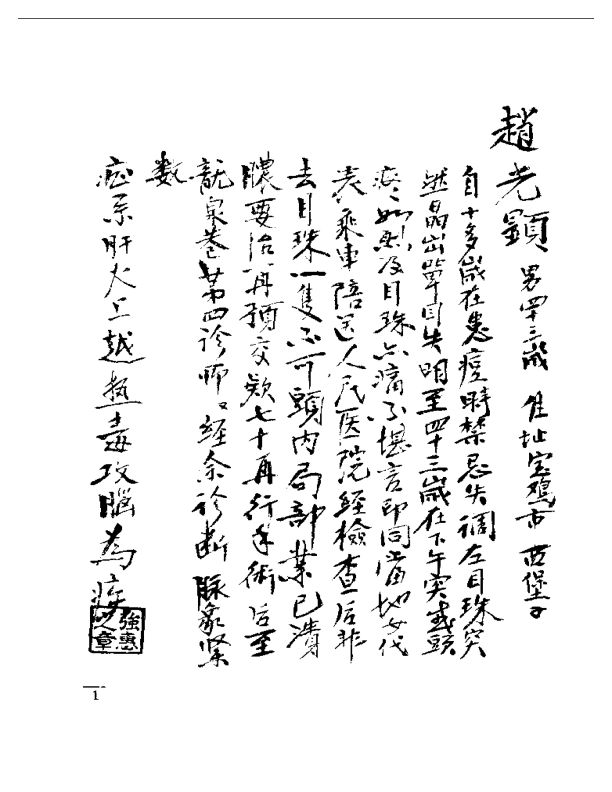 趙光顕 男 四十三歲 住址宝鸡市西堡子
自十多歲在患痘時禁忌失調左目珠突
然晶出單目失明至四十三歲在下午突感頭
疼如劇及目珠亦痛不堪言即同當地女代
表乘車陪送人民医院經檢查后非
去目珠一隻不可頭内局部業已潰
膿要治再預交欵七十再行手術后至
龍泉巷第四诊所经余诊断脉象紧
数
症系肝火上越热毒攻腦為疾
強惠
之章
1